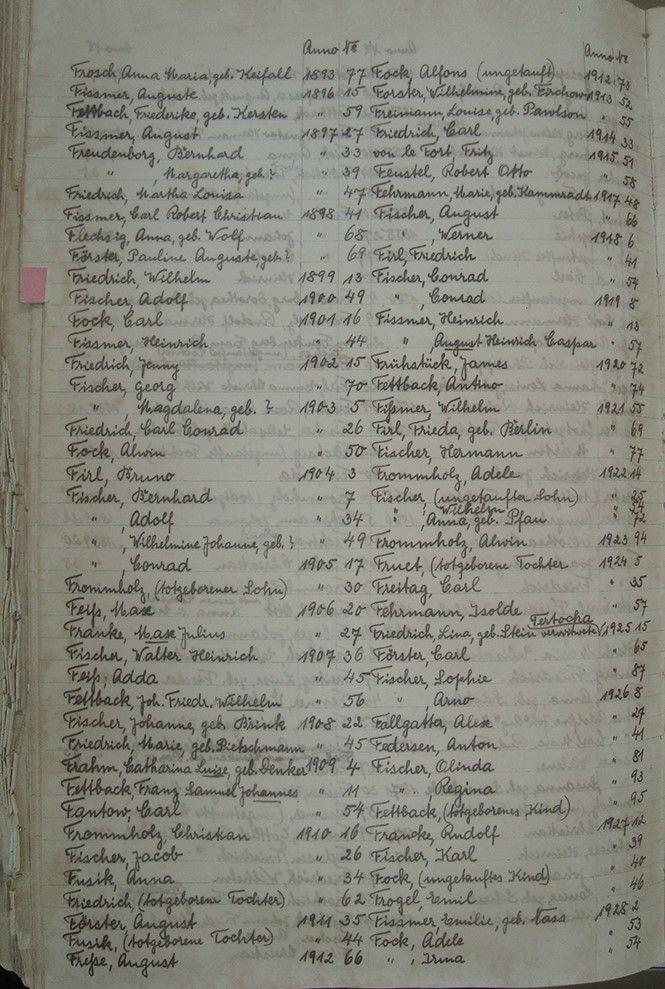 Anno №
Frosch, Anna Maria, geb. Keifall 1893 77
Fissmer, Auguste 1896 15
Fettbach, Friederike, geb. Kersten " 59
Fissmer, August 1897 27
Freudenborg, Bernhard " 33
" Margaretha, geb. ? " 39
Friedrich, Martha Louisa " 47
Fissmer, Carl Robert Christian 1898 41
Flechsig, Anna, geb. Wolf " 68
Förster, Pauline Auguste, geb. ? " 69
Friedrich, Wilhelm 1899 13
Fischer, Adolf 1900 49
Fock, Carl 1901 16
Fissmer, Heinrich " 44
Friedrich, Jenny 1902 15
Fischer, Georg " 70
" Magdalena, geb. ? 1903 5
Friedrich, Carl Conrad " 26
Fock, Alwin " 50
Firl, Bruno 1904 3
Fischer, Bernhard " 7
" , Adolf " 34
" , Wilhelmine Johanne, geb. ? " 49
" , Conrad 1905 17
Frommholz, (totgeborener Sohn) " 30
Feiß, Max 1906 20
Franke, Max Julius " 27
Fischer, Walter Heinrich 1907 36
Feiß, Adda " 45
Fettback, Joh. Friedr. Wilhelm " 56
Fischer, Johanne, geb. Brink 1908 22
Friedrich, Marie, geb. Pietschmann " 45
Frahm, Catharina Luise, geb. Denker 1909 4
Fettback, Franz Samuel Johannes " 11
Fantow, Carl " 54
Frommholz, Christian 1910 16
Fischer, Jacob " 26
Fusik, Anna " 34
Friedrich, (totgeborene Tochter) " 62
Förster, August 1911 35
Fusik, (totgeborene Tochter) " 44
Freße, August 1912 66
Anno №
Fock, Alfons (ungetauft) 1912 78
Forster, Wilhelmine, geb. Firchow 1913 52
Freimann, Louise, geb. Pawlson " 55
Friedrich, Carl 1914 33
von le Fort, Fritz 1915 51
Feustel, Robert Otto " 58
Fehrmann, Marie, geb. Kammradt 1917 48
Fischer, August " 66
" , Werner 1918 6
Firl, Friedrich " 41
Fischer, Conrad " 54
" Conrad 1919 8
Fissmer, Heinrich " 13
" , August Heinrich Caspar " 57
Frühstück, James 1920 72
Fettback, Antino " 74
Fißmer, Wilhelm 1921 55
Firl, Frieda, geb. Berlin " 69
Fischer, Hermann " 77
Frommholz, Adele 1922 14
Fischer, (ungetaufter Sohn) " 25
" , Wilhelm " 54
" Anna, geb. Pfau " 72
Frommholz, Alwin 1923 94
Fruct, (totgeborene Tochter 1924 5
Freitag, Carl " 35
Fehrmann, Isolde " 57
Friedrich, Lina, geb. Stein verwitwete Tertocha 1925 15
Förster, Carl " 65
Fischer, Sophie " 87
" , Arno 1926 8
Fallgatta, Alex " 27
Federsen, Anton " 41
Fischer, Olinda " 81
" Regina " 93
Fettback, (totgeborenes Kind) " 95
Francke, Rudolf 1927 12
Fischer, Karl " 39
Fock, (ungetauftes Kind) " 40
Frogel Emil " 46
Fissmer, Emilie, geb. Nass 1928 2
Fock, Adele " 53
" , Irma " 54